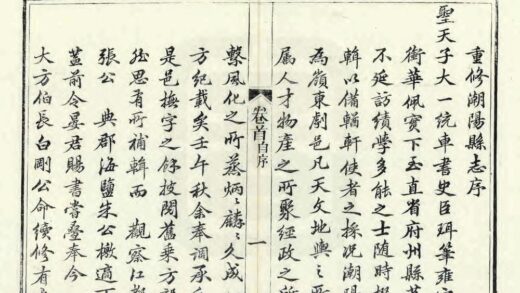 重修潮陽縣志序
聖天子大一統車書史臣珥筆雍容
衡華佩實下至直省府州縣莫
不延訪績學多能之士隨時摭
輯以備輶軒使者之採况潮陽
為嶺東劇邑凡天文地輿之所
屬人才物產之所聚經政之所
卷首自序
一
繫風化之所蒸炳之麟之久成
方紀載矣壬午秋余奉調承乏
是邑撫字之餘披閱舊乘方
拙思有所補輯而 觀察江都
張公 典郡海鹽朱公檄適下
葢前令晏君賜書嘗叠奉今
大方伯長白剛公命續修有